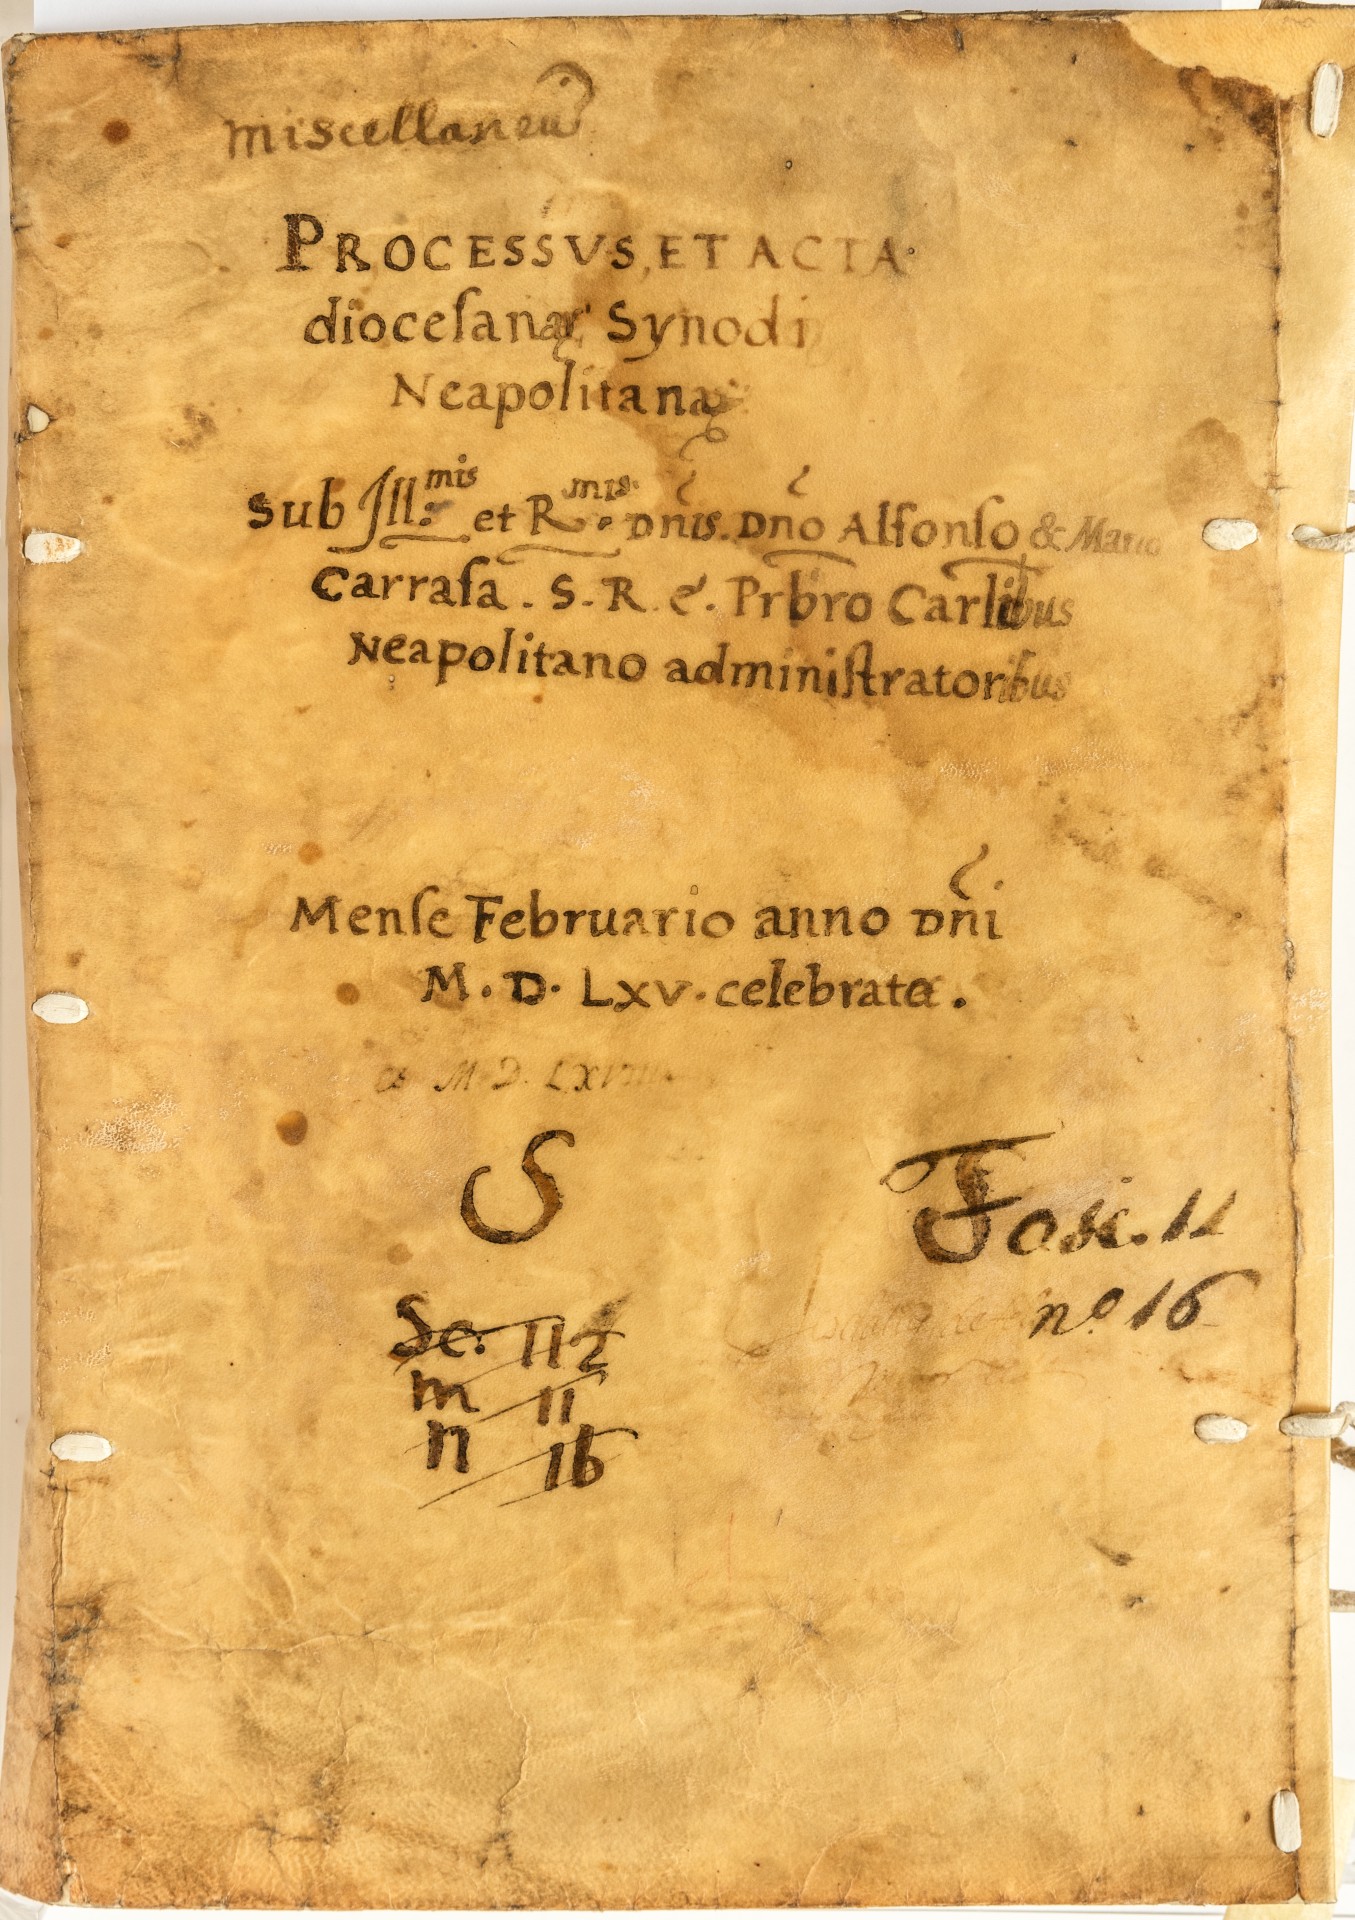 miscellaneũ
PROCESSVS, ET ACTA
dioceſanę Synodi
Neapolitanę
Sub Ill.mis et R.mis Dñis. Dño Alfonſo & Mario
Carrafa. S. R. e. Prbr̃o Carlibus
Neapolitano adminiſtratoribus
Menſe Februario anno Dñi
M. D. LXV. celebratę.
& M. D. LXVIII
S
Fasc. 11
nº 16
Sc. 112
m 11
n 16